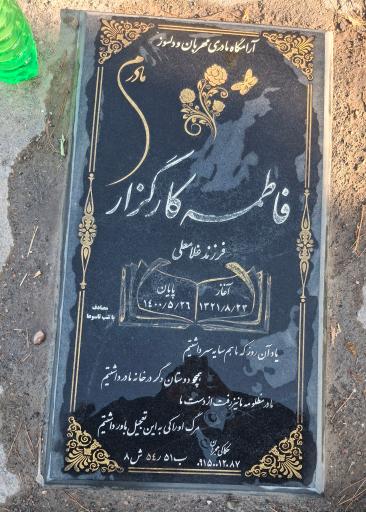 آرامگاه مادری مهربان و دلسوز
مادرم
فاطمه کارگزار
فرزند غلامعلی
آغاز
۱۳۲۱/۸/۲۳
پایان
۱۴۰۰/۵/۲۶
مصادف
با شب تاسوعا
یاد آن روز که ما هم سایه سر داشتیم
همچو دوستان دگر در خانه مادر داشتیم
مادر مظلومه ما نیز رفت از دست ما
مرگ او را کی به این تعجیل باور داشتیم
ب۵۱ ر۵۴ ش۸
۰۹۱۵۰۰۱۲۰۸۷